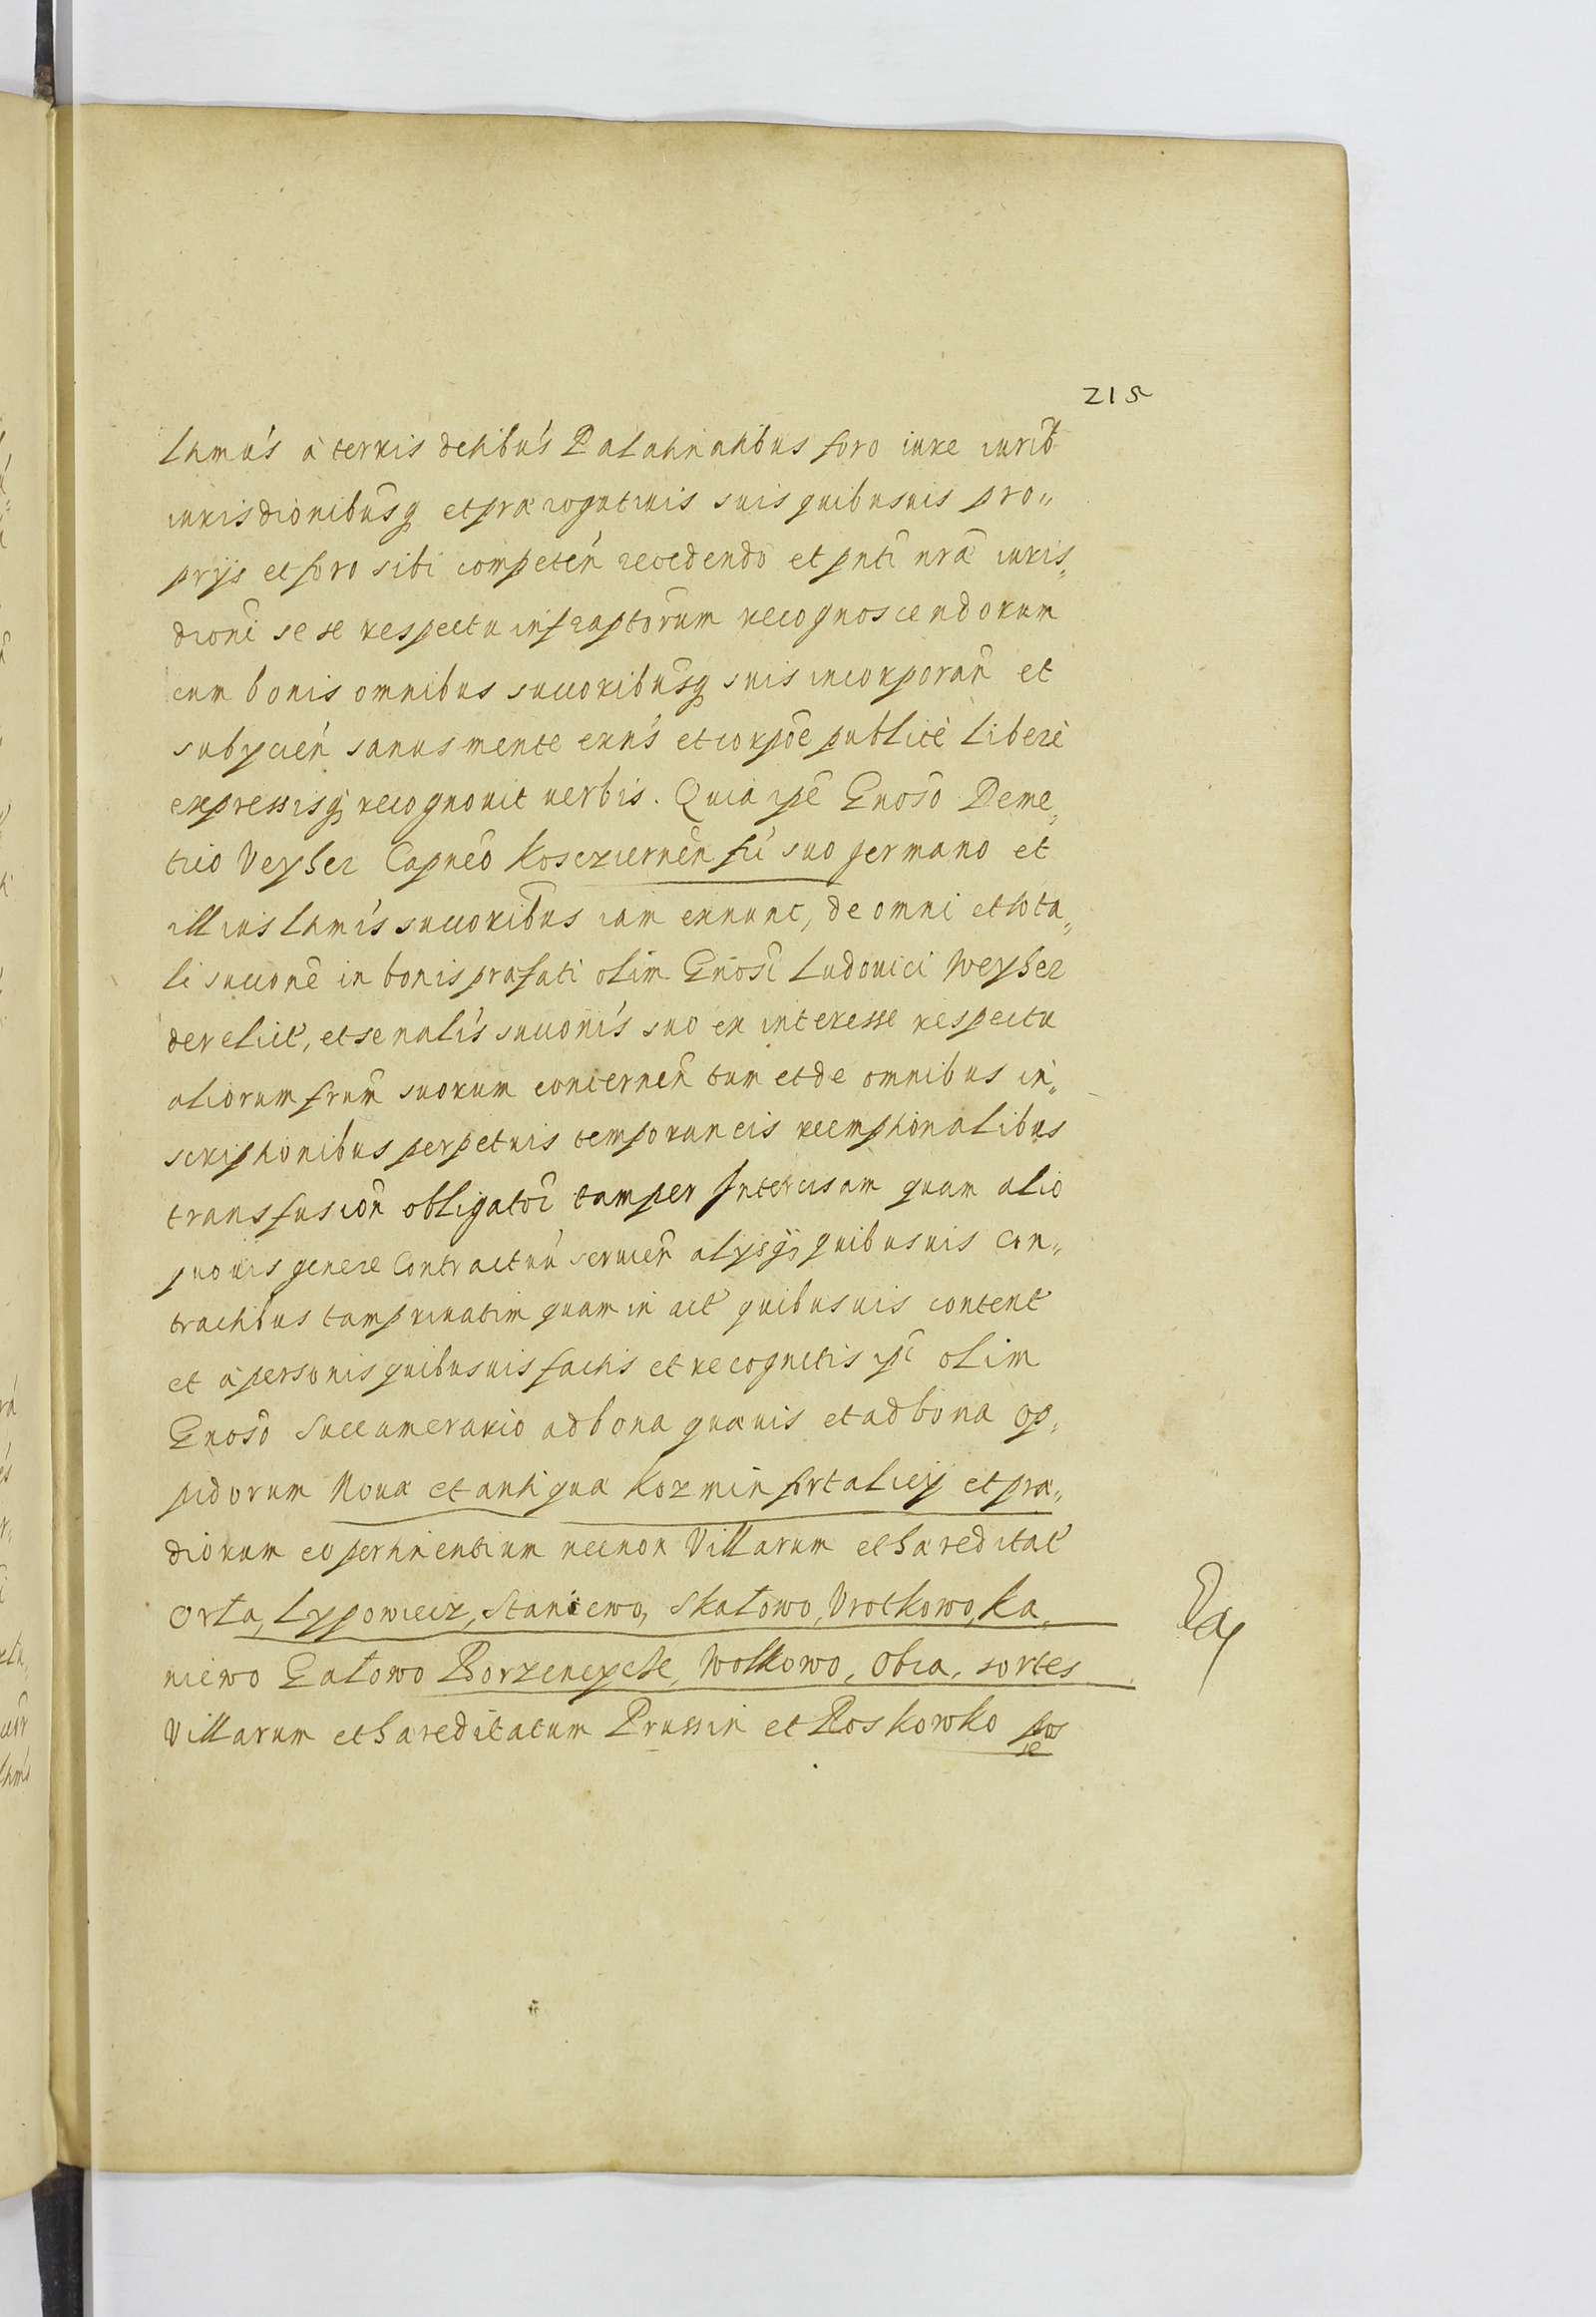 215
Lhmús à terris dehibús Palatinatibus foro iure iurib̃
iurisdionibusq̃ et prærogatiuis suis quibusuis pro„
prijs et foro sibi competeń recedendo et pnti nrã iuris„
dioni se se respectu infraptõrum recognoscendorum
cum bonis omnibus succoribusq̃ suis incorporan̄ et
subijcień sanus mente exńs et corpõe publicè liberè
expressisq́ recognouit uerbis. Quia ipẽ Gnosõ Deme„
trio Veyher Capneõ Koscziernen̄ fri suo germano et
illius Lhmis succoribus iam exnunc, de omni et tota„
li succonẽ in bonis præfati olim Gnosi Ludouici Weyher
derelict̃, et se nalís succonís suo ex interesse respectu
aliorum frum̃ suorum concernen̄ tum et de omnibus in„
scriptionibus perpetuis temporaneis reemptionalibus
transfusion̄ obligatoi tam per Intercisam quam alio
quouis genere Contractuũ seruien̄ alijsq́ quibusuis Con„
tractibus tam priuatim quam in act̃ quibusuis content̃
et à personis quibusuis factis et recognitis ipi olim
Gnosõ Succumerario ad bona quæuis et ad bona op„
pidorum Noua et antiqua Kozmin fortalicij et præ„
diorum eo pertinentium necnon Villarum et hæreditat̃
Orla, Lypowiecz, Staniewo, Skałowo, Wrotkowo, Ka„
niewo Gałowo Borzencyche, Wolkowo, Obra, sortes
Villarum et hæreditatum Prussin et Roskowko pos
se